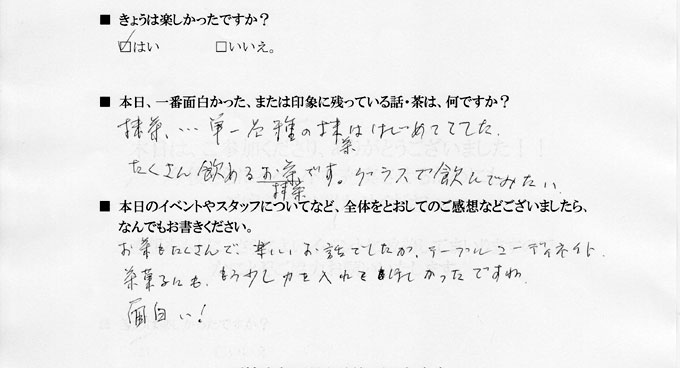 ■ きょうは楽しかったですか？
☑はい □いいえ。
■ 本日、一番面白かった、または印象に残っている話・茶は、何ですか？
抹茶、… 単一品種の抹茶ははじめてでした。
たくさん飲めるお茶です。グラスで飲んでみたい。
抹茶
■ 本日のイベントやスタッフについてなど、全体をとおしてのご感想などございましたら、
なんでもお書きください。
お茶もたくさんで、楽しいお話でしたが、テーブルコーディネイト、
茶菓子にも、もう少し力を入れてほしかったですね。
面白い！